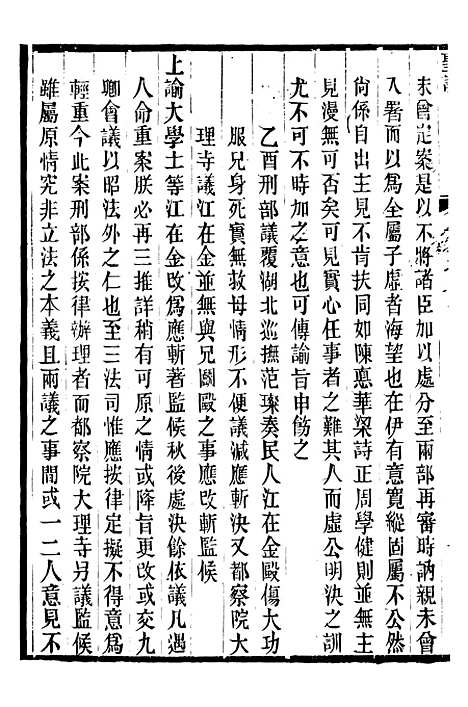 未曾定案是以不將諸臣加以處分至兩部再審時訥親未曾
入署而以為全屬子虛者海望也在伊有意寬縱固屬不公然
尚係自出主見不肯扶同如陳悳華梁詩正周學健則並無主
見漫無可否矣可見實心任事者之難其人而虛公明決之訓
尤不可不時加之意也可傳諭旨申飭之
乙酉刑部議覆湖北巡撫范璨奏民人江在金毆傷大功
服兄身死實無救母情形不便議減應斬決又都察院大
理寺議江在金並無與兄鬬毆之事應改斬監候
上諭大學士等江在金改為應斬著監候秋後處決餘依議凡遇
人命重案朕必再三推詳稍有可原之情或降旨更改或交九
卿會議以昭法外之仁也至三法司惟應按律定擬不得意為
輕重今此案刑部係按律辦理者而都察院大理寺另議監候
雖屬原情究非立法之本義且兩議之事間或一二人意見不